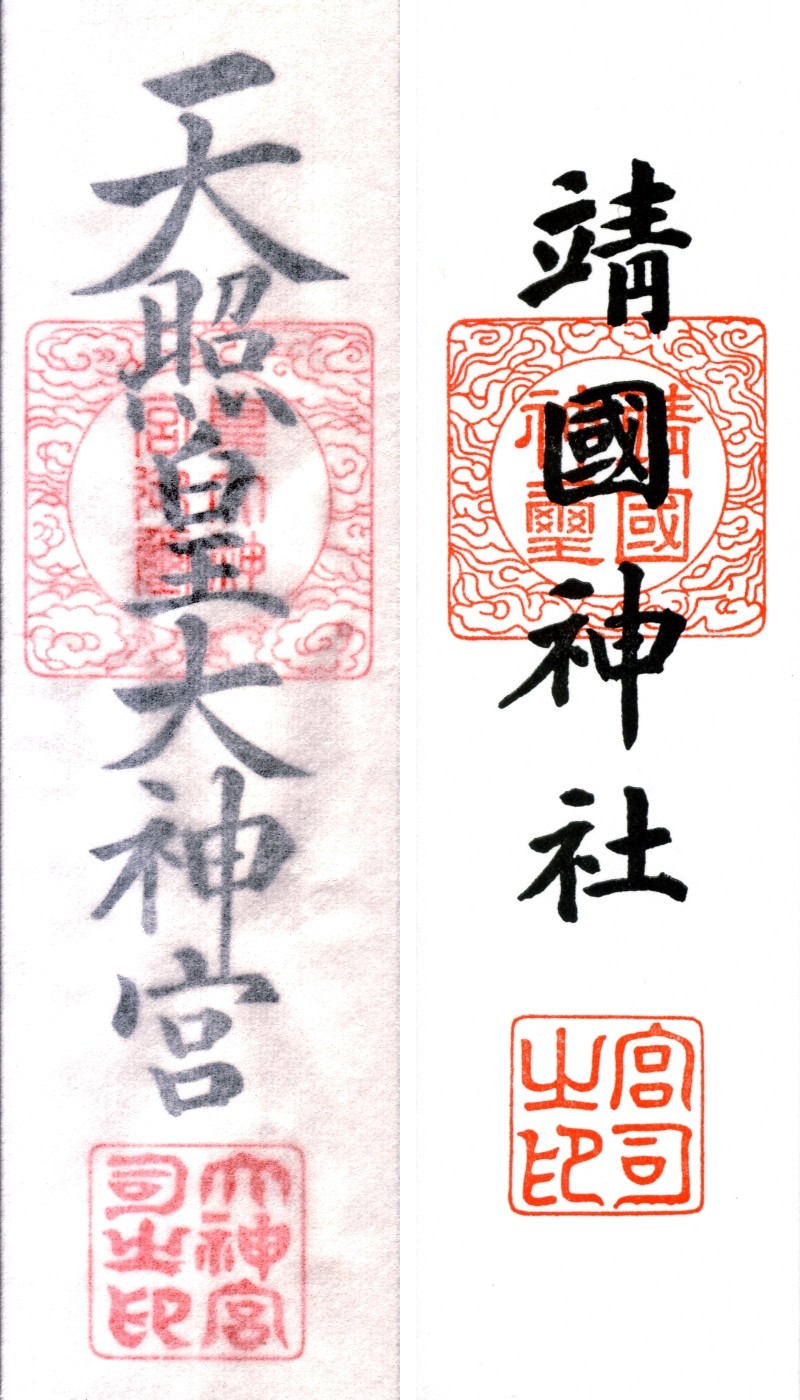 天照皇大神宮
大神宮
司之印
靖國神社
靖國
神璽
宮司
之印